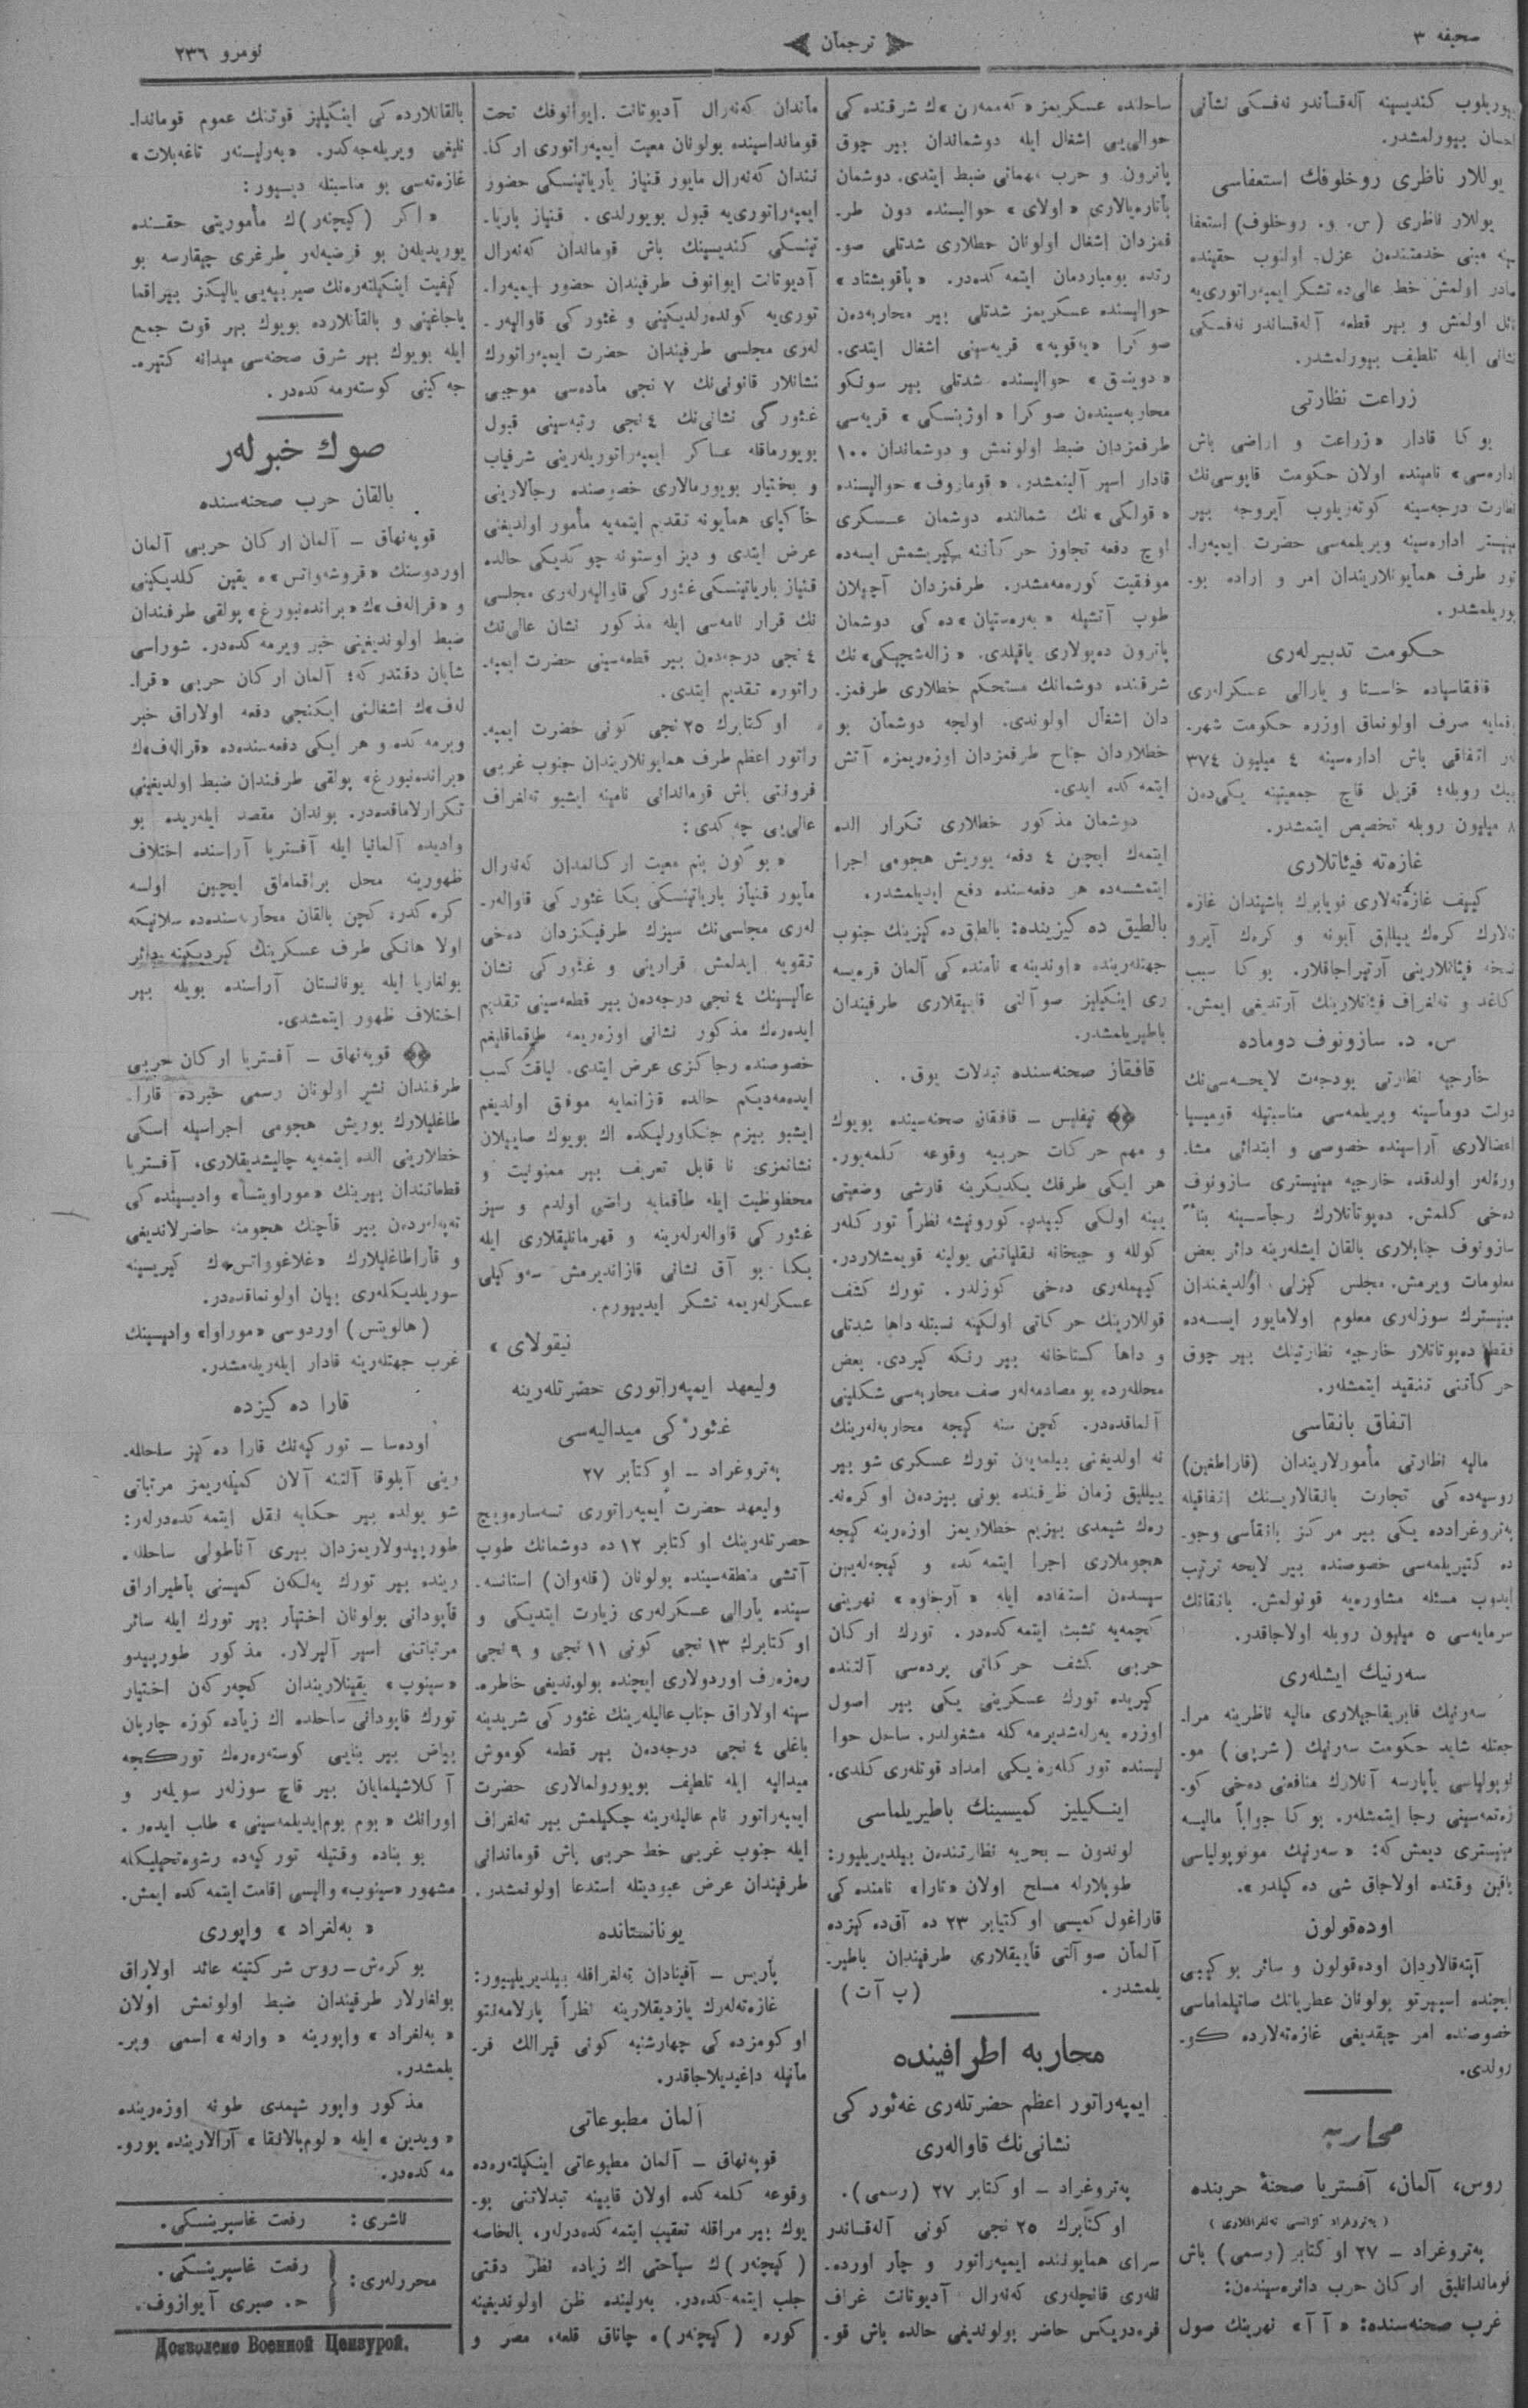 صحیفه ٣
ترجمان
نومرو ٢٣٦
بیوریلوب کندیسینه آله‌قساندر نه‌فسکی نشانی
احسان بیورلمشدر.
یوللار ناظری روخلوفك استعفاسی
یوللار ناظری (س. و. روخلوف) استعفا
سینه مبنی خدمتندن عزل اولنوب حقینده
صادر اولمش خط عالی‌ده تشکر ایمپه‌راتوری‌یه
نائل اولمش و بیر قطعه آله‌قساندر نه‌فسکی
نشانی ایله تلطیف بیورلمشدر.
زراعت نظارتی
بو کا قادار «زراعت و اراضی باش
اداره‌سی» نامینده اولان حکومت قاپوسی‌نك
نظارت درجه‌سینه کوته‌ریلوب آیروجه بیر
مینیستر اداره‌سینه ویریلمه‌سی حضرت ایمپه‌را-
تور طرف همایونلاریندان امر و اراده بو-
یوریلمشدر.
حکومت تدبیرله‌ری
قافقاسیاده خاستا و یارالی عسکرله‌ری
رفمایه صرف اولونماق اوزره حکومت شهر-
لر اتفاقی باش اداره‌سینه ٤ میلیون ٣٧٤
بیك روبله؛ قزیل قاچ جمعیتینه یکی‌دن
٨ میلیون روبله تخصیص ایتمشدر.
غازه‌ته فیئاتلاری
کییف غازه‌ته‌لاری نویابرك باشیندان غازه
ته‌لارك کره‌ك ییللق آبونه و کره‌ك آیرو
نسخه فیئاتلارینی آرتیراجاقلار. بو کا سبب
کاغد و ته‌لغراف فیئاتلارینك آرتدیغی ایمش.
س. د. سازونوف دوماده
خارجیه نظارتی بودجه‌ت لایحه‌سی‌نك
دولت دوماسینه ویریلمه‌سی مناسبتیله قومیسیا
اعضالاری آراسینده خصوصی و ابتدائی مشا-
وره‌لر اولدقده خارجیه مینیستری سازونوف
ده‌خی کلمش. ده‌پوتاتلارك رجاسینه بناءً
سازونوف جنابلاری بالقان ایشله‌رینه دائر بعض
معلومات ویرمش. مجلس کیزلی اولدیغندان
مینیسترك سوزله‌ری معلوم اولامایور ایسه‌ده
فقط ده‌پوتاتلار خارجیه نظارتینك بیر چوق
حرکاتنی تنقید ایتمشلر.
اتفاق بانقاسی
مالیه نظارتی مأمورلاریندان (قاراطغین)
روسیه‌ده کی تجارت بانقالارینك اتفاقیله
په‌تروغرادده یکی بیر مرکز بانقاسی وجو-
ده کتیریلمه‌سی خصوصنده بیر لایحه ترتیب
ایدوب مسئله مشاوره‌یه قونولمش. بانقانك
سرمایه‌سی ٥ میلیون روبله اولاجاقدر.
سه‌رنیك ایشله‌ری
سه‌رنیك فابریقاجیلاری مالیه ناظرینه مرا-
جعتله شاید حکومت سه‌رنیك (شرپی) مو-
نوپولیاسی یاپارسه آنلارك منافعنی ده‌خی کو-
زه‌تمه‌سینی رجا ایتمشله‌ر. بو کا جواباً مالیه
مینیستری دیمش که: «سه‌رنیك مونوپولیاسی
یاقین وقتده اولاجاق شی ده کیلدر».
اوده‌قولون
آپته‌قالاردان اوده‌قولون و سائر بو کیبی
ایچنده اسپیرتو بولونان عطریاتك صاتیلماماسی
خصوصنده امر چیقدیغی غازه‌ته‌لارده کو-
رولدی.
محاربه
روس، آلمان، آفستریا صحنهٔ حربنده
(په‌تروغراد آژانسی ته‌لغرافلاری)
په‌تروغراد – ٢٧ اوکتابر (رسمی) باش
قوماندانلیق ارکان حرب دائره‌سیندن:
غرب صحنه‌سنده: «آ آ» نهرینك صول
ساحلنده عسکریمز «که‌مه‌رن»ك شرقنده کی
حوالی‌یی اشغال ایله دوشماندان بیر چوق
پاترون و حرب مهماتی ضبط ایتدی. دوشمان
باتاره‌یالاری «اولای» حوالیسنده دون طر-
فمزدان اشغال اولونان خطلاری شدتلی صو-
رتده بومباردمان ایتمه کده‌در. «یاقوبشتاد»
حوالیسنده عسکریمز شدتلی بیر محاربه‌دن
صوکرا «یه‌قوبه» قریه‌سینی اشغال ایتدی.
«دوینسق» حوالیسنده شدتلی بیر سونکو
محاربه‌سیندن صوکرا «اوژینسکی» قریه‌سی
طرفمزدان ضبط اولونمش و دوشماندان ١٠٠
قادار اسیر آلینمشدر. «قوماروف» حوالیسنده
«قولکی» نك شمالنده دوشمان عسکری
اوچ دفعه تجاوز حرکاتنه کیریشمش ایسه‌ده
موفقیت کوره‌مه‌مشدر. طرفمزدان آچیلان
طوب آتشیله «به‌ره‌ستیان»ده کی دوشمان
پاترون ده‌پولاری یاقیلدی. «زاله‌شچیکی» نك
شرقنده دوشمانك مستحکم خطلاری طرفمز-
دان اشغال اولوندی. اولجه دوشمان بو
خطلاردان جناح طرفمزدان اوزه‌ریمزه آتش
ایتمه کده ایدی.
دوشمان مذکور خطلاری تکرار الده
ایتمه‌ك ایچن ٤ دفعه یوریش هجومی اجرا
ایتمشسه‌ده هر دفعه‌سنده دفع ایدیلمشدر.
بالطیق ده کیزینده: بالطق ده کیزینك جنوب
جهتله‌رینده «اوندینه» نامنده کی آلمان قره‌یسه
ری اینکیلیز صو آلتی قاییقلاری طرفیندان
باطیریلمشدر.
قافقاز صحنه‌سنده تبدلات یوق.
تیفلیس – قافقاز صحنه‌سینده بویوك
و مهم حرکات حربیه وقوعه کلمه‌یور.
هر ایکی طرفك یکدیکرینه قارشی وضعیتی
یینه اولکی کیبدر. کورونیشه نظراً تورکله‌ر
کولله و جبخانه نقلیاتنی یولینه قویمشلاردر.
کییمله‌ری ده‌خی کوزلدر. تورك کشف
قوللارینك حرکاتی اولکینه نسبتله داها شدتلی
و داها کستاخانه بیر رنکه کیردی. بعض
محللرده بو مصادمه‌لر صف محاربه‌سی شکلینی
آلماقده‌در. کچن سنه کیجه محاربه‌له‌رینك
نه اولدیغنی بیلمه‌یه‌ن تورك عسکری شو بیر
ییللیق زمان ظرفنده بونی بیزدن اوکره‌نه-
ره‌ك شیمدی بیزیم خطلاریمز اوزه‌رینه کیجه
هجوملاری اجرا ایتمه کده و کیجه‌له‌یین
سیسدن استفاده ایله «آرخاوه» نهرینی
کچمه‌یه تشبث ایتمه کده‌در. تورك ارکان
حربی کشف حرکاتی پرده‌سی آلتنده
کیریده تورك عسکرینی یکی بیر اصول
اوزره یه‌رله‌شدیرمه کله مشغولدر. ساحل حوا
لیسنده تورکله‌ره یکی امداد قوتله‌ری کلدی.
اینکیلیز کمیسینك باطیریلماسی
لوندون – بحریه نظارتندن بیلدیریلیور:
طوپلارله مسلح اولان «تارا» نامنده کی
قاراغول کمیسی اوکتیابر ٢٣ ده آق‌ده کیزده
آلمان صو آلتی قاییقلاری طرفیندان باطیر-
یلمشدر. (پ آ ت)
محاربه اطرافینده
ایمپه‌راتور اعظم حضرتله‌ری غه‌ئورکی
نشانی‌نك قاواله‌ری
په‌تروغراد – اوکتابر ٢٧ (رسمی).
اوکتابرك ٢٥ نجی کونی آله‌قساندر
سرای همایوننده ایمپه‌راتور و چار اورده-
نله‌ری قانچله‌ری که‌نه‌رال آدیوتانت غراف
فره‌دریکس حاضر بولوندیغی حالده باش قو-
ماندان که‌نه‌رال آدیوتانت ایوانوفك تحت
قومانداسینده بولونان معیت ایمپه‌راتوری ارکا-
نندان که‌نه‌رال مایور قنیاز باریاتینسکی حضور
ایمپه‌راتوری‌یه قبول بویورلدی. قنیاز باریا-
تینسکی کندیسینك باش قوماندان که‌نه‌رال
آدیوتانت ایوانوف طرفیندان حضور ایمپه‌را-
توری‌یه کوندرلدیکینی و غئورکی قاوالیه‌ر-
له‌ری مجلسی طرفیندان حضرت ایمپه‌راتورك
نشانلار قانونی‌نك ٧ نجی ماده‌سی موجبی
غئورکی نشانی‌نك ٤ نجی رتبه‌سینی قبول
بویورماقله عساکر ایمپه‌راتوریله‌رینی شرفیاب
و بختیار بویورمالاری خصوصنده رجالارینی
خاکپای همایونه تقدیم ایتمه‌یه مأمور اولدیغنی
عرض ایتدی و دیز اوستونه چوکدیکی حالده
قنیاز باریاتینسکی غئورکی قاوالیه‌رله‌ری مجلسی
نك قرار نامه‌سی ایله مذکور نشان عالی‌نك
٤ نجی درجه‌دن بیر قطعه‌سینی حضرت ایمپه-
راتوره تقدیم ایتدی.
اوکتابرك ٢٥ نجی کونی حضرت ایمپه-
راتور اعظم طرف همایونلاریندان جنوب غربی
فرونتی باش قوماندانی نامینه ایشبو ته‌لغراف
عالی‌یی چه‌کدی:
«بو کون بنم معیت ارکانمدان که‌نه‌رال
مایور قنیاز باریاتینسکی بکا غئورکی قاواله‌ر-
له‌ری مجلسی‌نك سیزك طرفیکزدان ده‌خی
تقویه ایدلمش قرارینی و غئورکی نشان
عالیسینك ٤ نجی درجه‌دن بیر قطعه‌سینی تقدیم
ایده‌ره‌ك مذکور نشانی اوزه‌ریمه طاقماقلیغم
خصوصنده رجاکزی عرض ایتدی. لیاقت کسب
ایده‌مه‌دیکم حالده قزانمایه موفق اولدیغم
ایشبو بیزم جنکاورلیکده اك بویوك صاییلان
نشانمزی نا قابل تعریف بیر ممنونیت و
محظوظیت ایله طاقمایه راضی اولدم و سیز
غئورکی قاواله‌رله‌رینه و قهرمانلیقلاری ایله
بکا بو آق نشانی قازاندیرمش سه‌وکیلی
عسکرله‌ریمه تشکر ایدییورم.
نیقولای»
ولیعهد ایمپه‌راتوری حضرتله‌رینه
غئورکی میدالیه‌سی
په‌تروغراد – اوکتابر ٢٧
ولیعهد حضرت ایمپه‌راتوری تسه‌ساره‌ویچ
حضرتله‌رینك اوکتابر ١٢ ده دوشمانك طوب
آتشی منطقه‌سینده بولونان (قله‌وان) استانسه-
سینده یارالی عسکرله‌ری زیارت ایتدیکی و
اوکتابرك ١٣ نجی کونی ١١ نجی و ٩ نجی
ره‌زه‌رف اوردولاری ایچنده بولوندیغی خاطره-
سینه اولاراق جناب عالیله‌رینك غئورکی شریدینه
باغلی ٤ نجی درجه‌دن بیر قطعه کوموش
میدالیه ایله تلطیف بویورولمالاری حضرت
ایمپه‌راتور نام عالیله‌رینه چکیلمش بیر ته‌لغراف
ایله جنوب غربی خط حربی باش قوماندانی
طرفیندان عرض عبودیتله استدعا اولونمشدر.
یونانستانده
پاریس – آفینادان ته‌لغرافله بیلدیریلیور:
غازه‌ته‌له‌رك یازدیقلارینه نظراً پارلامه‌نتو
اوکومزده کی چهارشنبه کونی قیرالك فر-
مانیله داغیدیلاجاقدر.
آلمان مطبوعاتی
قوپه‌نهاق – آلمان مطبوعاتی اینکیلته‌ره‌ده
وقوعه کلمه کده اولان قابینه تبدلاتنی بو-
یوك بیر مراقله تعقیب ایتمه کده‌درله‌ر، بالخاصه
(کیچنه‌ر)ك سیاحتی اك زیاده نظر دقتی
جلب ایتمه کده‌در. به‌رلینده ظن اولوندیغینه
کوره (کیچنه‌ر)ه چاناق قلعه، مصر و
بالقانلارده کی اینکیلیز قوتنك عموم قوماندا-
نلیغی ویریله‌جه‌کدر. «به‌رلینه‌ر تاغه‌بلات»
غازه‌ته‌سی بو مناسبتله دییور:
«اکر (کیچنه‌ر)ك مأموریتی حقنده
یوریدیله‌ن بو فرضیه‌له‌ر طوغری چیقارسه بو
کیفیت اینکیلته‌ره‌نك صیربیه‌یی یالیکز بیراقما
یاجاغینی و بالقانلارده بویوك بیر قوت جمع
ایله بویوك بیر شرق صحنه‌سی میدانه کتیره-
جه‌کینی کوسته‌رمه کده‌در.
صوك خبرلەر
بالقان حرب صحنه‌سنده
قوپه‌نهاق – آلمان ارکان حربی آلمان
اوردوسنك «قروشه‌واتس»ه یقین کلدیکینی
و «قراله‌ف»ك «براندنبورغ» پولقی طرفندان
ضبط اولوندیغینی خبر ویرمه کده‌در. شوراسی
شایان دقتدر که؛ آلمان ارکان حربی «قرا-
له‌ف»ك اشغالنی ایکنجی دفعه اولاراق خبر
ویرمه کده و هر ایکی دفعه‌سنده‌ده «قراله‌ف»ك
«براندنبورغ» پولقی طرفندان ضبط اولدیغینی
تکرارلاماقده‌در. بوندان مقصد ایله‌ریده بو
وادیده آلمانیا ایله آفستریا آراسنده اختلاف
ظهورینه محل براقماماق ایچین اولسه
کره‌کدر. کچن بالقان محاربه‌سنده‌ده سلانیکه
اولا هانکی طرف عسکرینك کیردیکینه دائر
بولغاریا ایله یونانستان آراسنده بویله بیر
اختلاف ظهور ایتمشدی.
قوپه‌نهاق – آفستریا ارکان حربی
طرفندان نشر اولونان رسمی خبرده قارا-
طاغلیلارك یوریش هجومی اجراسیله اسکی
خطلارینی الده ایتمه‌یه چالیشدیقلاری، آفستریا
قطعاتندان بیرینك «موراویتسا» وادیسینده کی
ته‌په‌له‌ردن بیر قاچنك هجومنه حاضرلاندیغی
و قاراطاغلیلارك «غلاغوواتس»ك کیریسینه
سوریلدیکله‌ری بیان اولونماقده‌در.
(هالویتس) اوردوسی «موراوا» وادیسینك
غرب جهتله‌رینه قادار ایله‌ریله‌مشدر.
قارا ده کیزده
اوده‌سا – تورکیه‌نك قارا ده کیز ساحلله-
رینی آبلوقا آلتنه آلان کمیله‌ریمز مرتباتی
شو یولده بیر حکایه نقل ایتمه کده‌درله‌ر:
طورپیدولاریمزدان بیری آناطولی ساحلله-
رینده بیر تورك یه‌لکه‌ن کمیسنی باطیراراق
قاپودانی بولونان اختیار بیر تورك ایله سائر
مرتباتنی اسیر آلیرلار. مذکور طورپیدو
«سینوب» یقینلاریندان کچه‌رکه‌ن اختیار
تورك قاپودانی ساحلده اك زیاده کوزه چارپان
بیاض بیر بنایی کوسته‌ره‌ره‌ك تورکجه
آکلاشیلمایان بیر قاچ سوزله‌ر سویله‌ر و
اورانك «بوم بوم ایدیلمه‌سینی» طلب ایده‌ر.
بو بناده وقتیله تورکیه‌ده رشوه‌تجیلیکله
مشهور «سینوب» والیسی اقامت ایتمه کده ایمش.
«به‌لغراد» واپوری
بوکره‌ش – روس شرکتینه عائد اولاراق
بولغارلار طرفیندان ضبط اولونمش اولان
«به‌لغراد» واپورینه «وارنه» اسمی ویر-
یلمشدر.
مذکور واپور شیمدی طونه اوزه‌رینده
«ویدین» ایله «لوم‌پالانقا» آرالارینده یورو-
مه کده‌در.
ناشری: رفعت غاسپرینسکی.
محررله‌ری: رفعت غاسپرینسکی.
ح. صبری آیوازوف.
Дозволено Военной Цензурой.